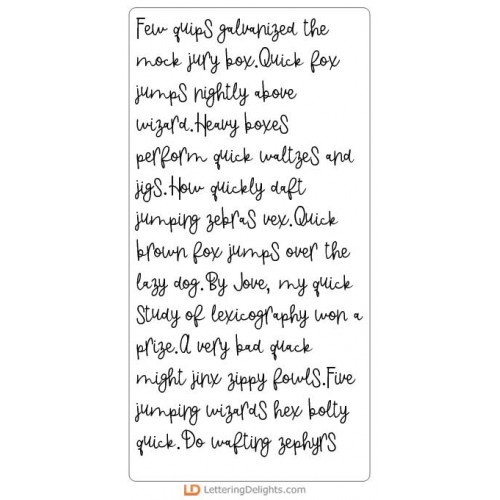 Few quips galvanized the
mock jury box.Quick fox
jumps nightly above
wizard.Heavy boxes
perform quick waltzes and
jigs.How quickly daft
jumping zebras vex.Quick
brown fox jumps over the
lazy dog.By Jove, my quick
study of lexicography won a
prize.A very bad quack
might jinx zippy fowls.Five
jumping wizards hex bolty
quick.Do wafting zephyrs
LD LetteringDelights.com